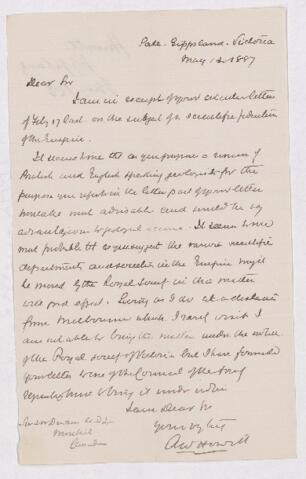 Sale. Gippsland. Victoria
May 12. 1887
Dear Sir
I am in receipt of your circular letter
of Feby 17 last on the subject of a scientific federation
of the Empire.
It seems to me that as you propose a union of
British and English speaking geologists for the
purpose you in the letter part of your letter
most advisable and would be very
advantageous to geological science. It seems to me
most probable that as you suggest the various scientific
departments and societies in the Empire might
be moved by the Royal Society in this matter
with good effect. Living as I do at a distance
from Melbourne which I rarely visit I
am not able to bring the matter under the notice
of the Royal Society of Victoria but I have forwarded
your letter to one of the Council of the Society
requesting him to bring it under notice
I am Dear Sir
Yours
A W Howitt
Sir J W Dawson
Montreal
Canada